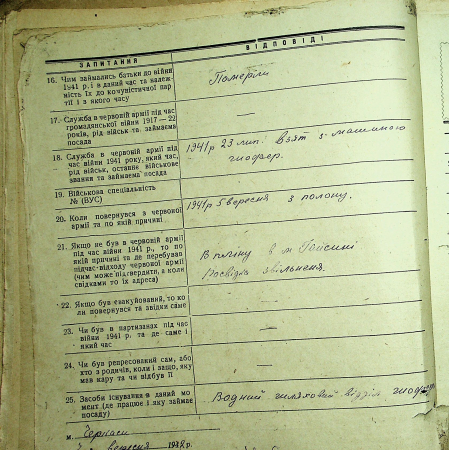 ЗАПИТАННЯ
ВІДПОВІДІ
16. Чим займались батьки до війни
1941 р. і в даний час та належ-
ність їх до комуністичної пар-
тії і з якого часу
Померли
17. Служба в червоній армії під час
громадянської війни 1917—22
років, рід військ та займаєма
посада
—
18. Служба в червоній армії під
час війни 1941 року, який час,
рід військ, останнє військове
звання та займаєма посада
1941 р 23 лип. взят з машиною
шофер.
19. Військова спеціальність
№ (ВУС)
20. Коли повернувся з червоної
армії та по якій причині
1941 р 5 вересня з полону.
21. Якщо не був в червоній армії
під час війни 1941 р., то по
якій причині та де перебував
підчас відходу червоної армії
(чим може підтвердити, а коли
свідками то їх адреса)
В полону в м Гайсині
звільненя.
22. Якщо був евакуйований, то ко-
ли повернувся та звідки саме
—
23. Чи був в партизанах під час
війни 1941 р. та де саме і
який час
—
24. Чи був репресований сам, або
хто з родичів, коли і защо, яку
мав кару та чи відбув її
—
25. Засоби існування в даний мо-
мент (де працює і яку займає
посаду)
Водний шляховий відділ шофер
м. Черкаси
вересня 194 р.